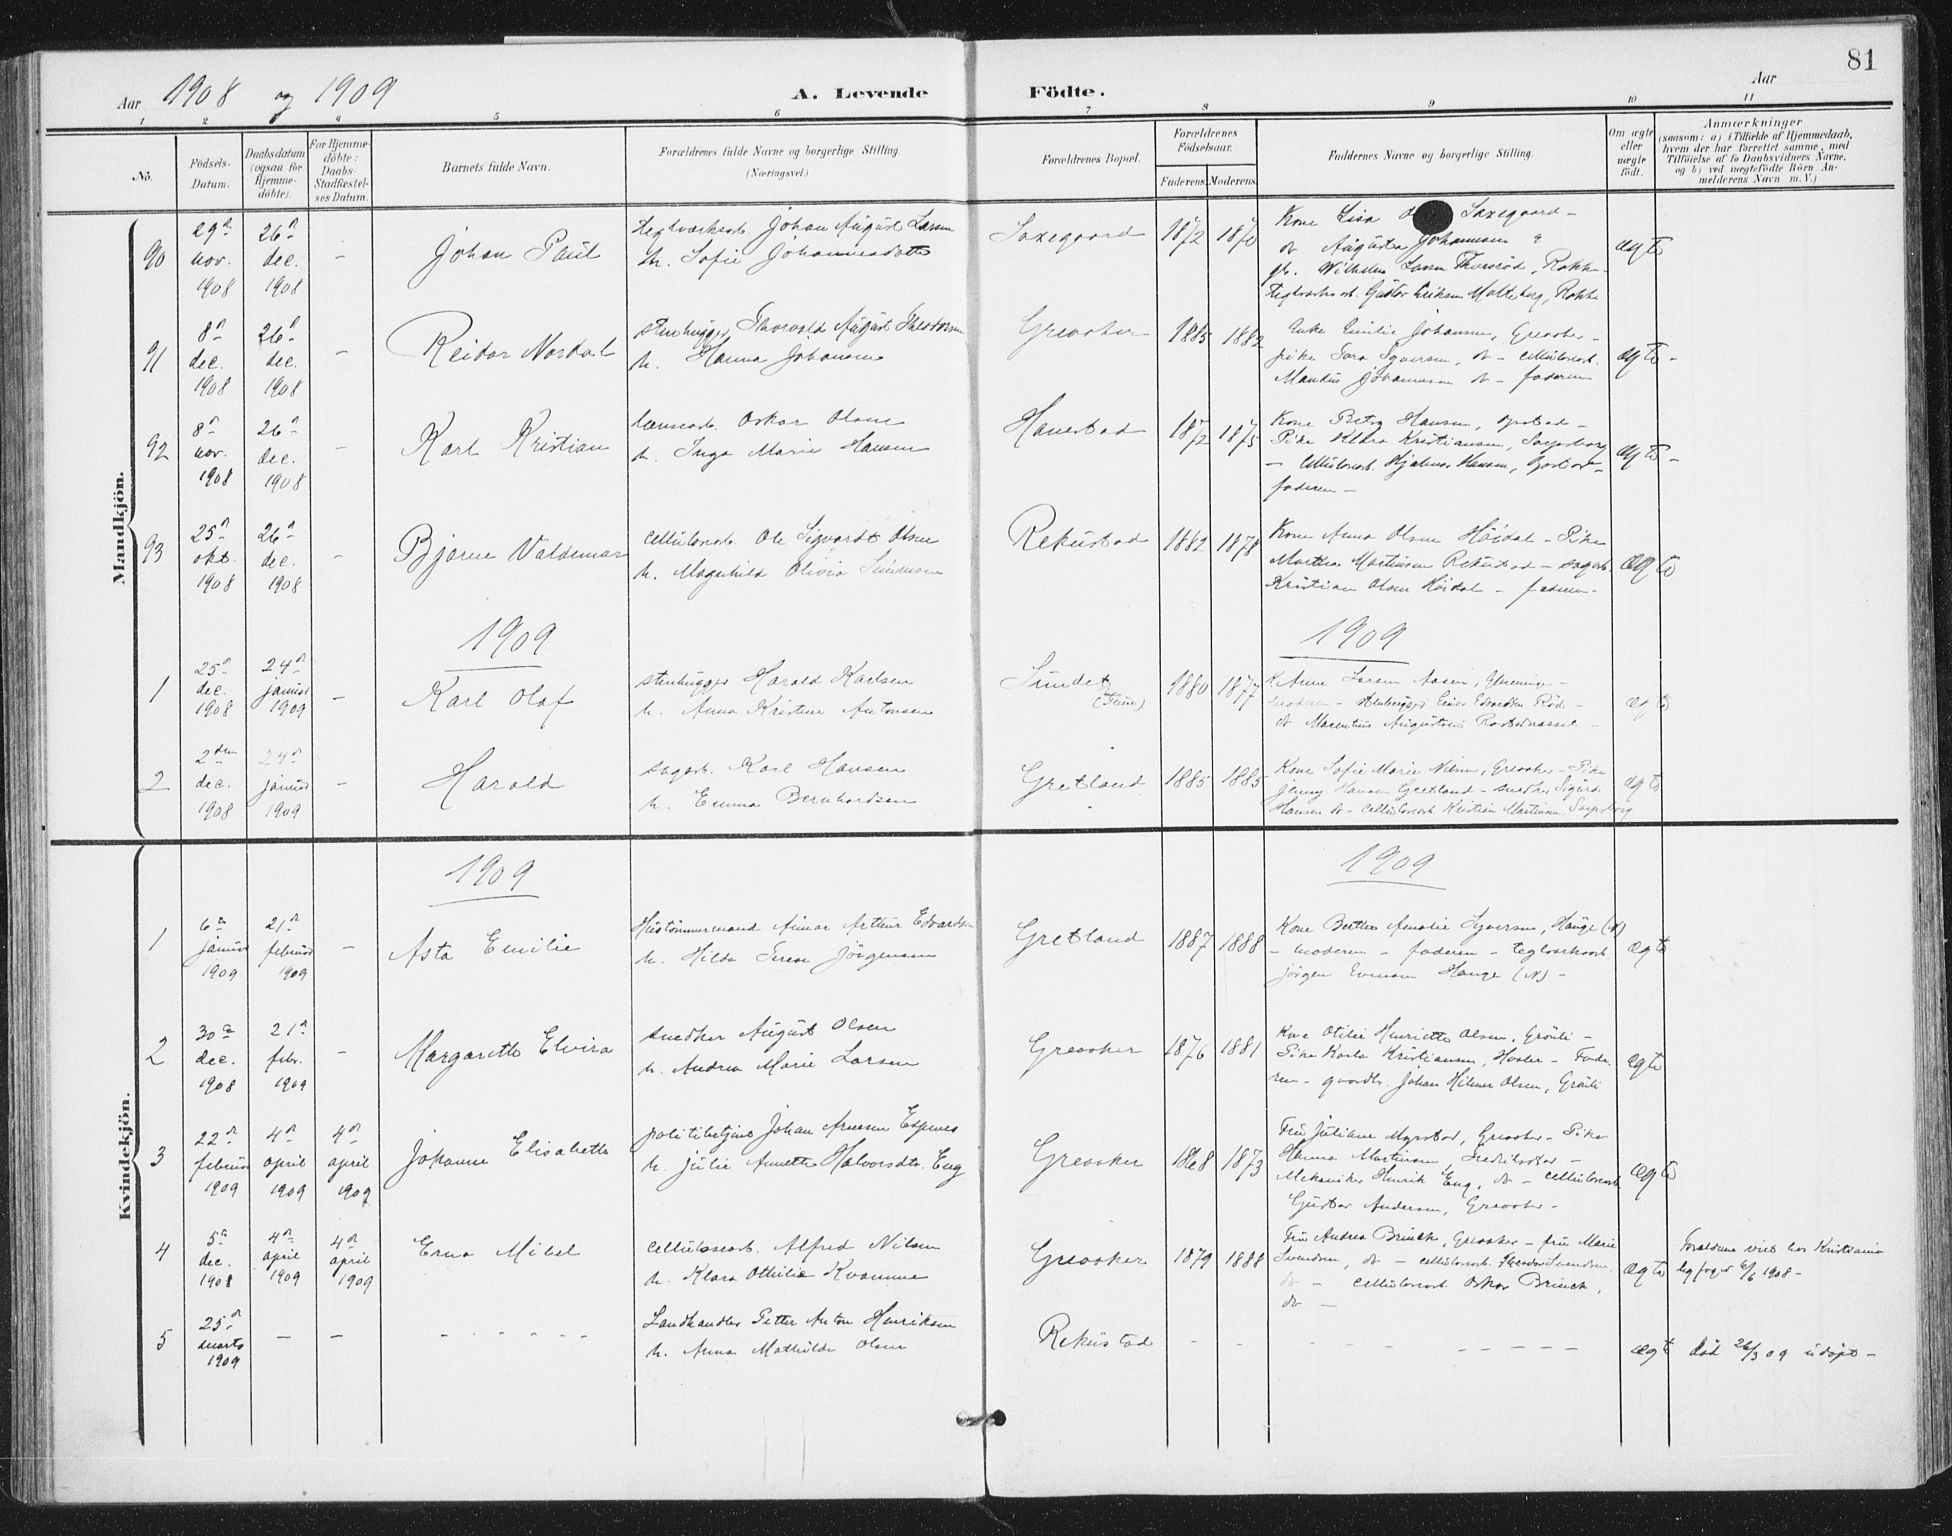 81
Aar 1908 og 1909
A. Levende Födte.
Aar
1 2 3 4 5 6 7 8 9 10 11
Nö.
Födsels-Datum.
Daabsdatum (ogsaa for Hjemme-döbte).
For Hjemme-döbte: Daabs-Stadfæstel-ses Datum.
Barnets fulde Navn.
Forældrenes fulde Navne og borgerlige Stilling. (Næringsvei.)
Forældrenes Bopæl.
Forældrenes Födselsaar.
Faderens. Moderens.
Faddernes Navne og borgerlige Stilling.
Om ægte eller uægte födt.
Anmærkninger
(saasom: a) i Tilfælde af Hjemmedaab,
hvem der har forrettet samme, med
Tilföielse af to Daabsvidners Navne,
og b) ved uægtefödte Börn An-
melderens Navn m. V.)
Mandkjön.
90 29de nov. 1908 26de dec. 1908 - Johan Paul
teglværksarb. Johan August Larsen
h. Sofie Johannesdatter
Saxegaard 1872 1870
Kone Lisa Saxegaard -
do Augusta Johannesen
Wilhelm Larsen Thorsröd, Rokke
teglværksarb. Gustav Eriksen Molteberg, Rokke
ægte
91 8de dec. 1908 26de dec. 1908 - Reidar Nordal
stenhugger Thorvald August Theodorsen
h. Hanna Johansen
Greaaker 1885 1882
Enke Emilie Johansen, Greaaker -
pike Sara Syversen, do - cellulosearb.
Mandius Johannesen do - faderen
ægte -
92 8de nov. 1908 26de dec. 1908 - Karl Kristian
lænsearb. Oskar Olsen
h. Inga Marie Hansen
Hanestad 1872 1875
Kone Petra Hansen, Opstad -
Pike Klara Kristiansen, Sarpsborg
- cellulosearb. Hjalmar Hansen, Opstad -
faderen -
ægte -
93 25de okt. 1908 26de dec. 1908 - Bjarne Valdemar
cellulosearb. Ole Sigvardt Olsen
h. Magnhild Olivia Simensen
Rekustad 1882 1878
Kone Anna Olsen Höidal - Pike
Martha Martinsen Rekustad - sagarb.
Kristian Olsen Höidal - faderen -
ægte
1909 1909
1 25de dec. 1908 24de januar 1909 - Karl Olaf
stenhugger Harald Karlsen
h. Anna Kristine Antonsen
Sundet (Tune) 1880 1877
K. Anne Larsen Aasen, Glemminge -
moderen - stenhugger Einar Edvardsen Röd -
do Marentius Augustsen
ægte
2 2den dec. 1908 24de januar 1909 - Harald
sagarb. Karl Hansen
h. Emma Bernhardsen
Gretland 1885 1885
Kone Sofie Marie Nilsen, Greaaker - Pike
Jenny Hansen Gretland - snedker Sigurd
Hansen do - cellulosearb. Kristian Martinsen, Sarpsborg
ægte
Kvindekjön.
1909 1909
1 6te januar 1909 21de februar 1909 - Asta Emilie
Hustömmermand Aimar Arthur Edvardsen
h. Hilda Teresa Jörgensen
Gretland 1887 1888
Kone Berthe Amalie Syversen, Hauge (N)
- moderen - faderen - teglværksarb.
Jörgen Evensen Hauge (N) -
ægte
2 30te dec. 1908 21de febr. 1909 - Margarethe Elvira
snedker August Olsen
h. Andrea Marie Larsen
Greaaker 1876 1881
Kone Otilie Henriette Olsen, Grönli -
Pike Karla Kristiansen, Hvaler - Fade-
ren - gaardbr. Johan Hilmar Olsen, Grönli
ægte
3 22de februar 1909 4de april 1909 4de april 1909 Johanne Elisabeth
politibetjent Johan Arnesen Espenes
h. Julie Annette Halvorsdtr. Eng
Greaaker 1868 1873
Fru Juliane Myrstad, Greaaker - Pike
Hanna Martinsen, Fredrikstad -
Mekaniker Henrik Eng, do - cellulosearb.
Gustav Andersen, Greaaker -
ægte
4 5te dec. 1908 4de april 1909 4de april 1909 Erna Mikel
cellulosearb. Alfred Nilsen
h. Klara Othilie Kvamme
Greaaker 1879 1888
Fru Andrea Brinch, Greaaker - fru Marie
Svendsen, do - cellulosearb. Theodor Svendsen,
do - cellulosearb. Oskar Brinch,
do -
ægte
Forældrene viet hos Kristiania
byfoged 6/6 1908 -
5 25de marts 1909 - - - - - - -
Landhandler Petter Anton Henriksen
h. Anna Mathilde Olsen
Rekustad - - - - - - - - - -
ægte död 26/3 09 udöpt -